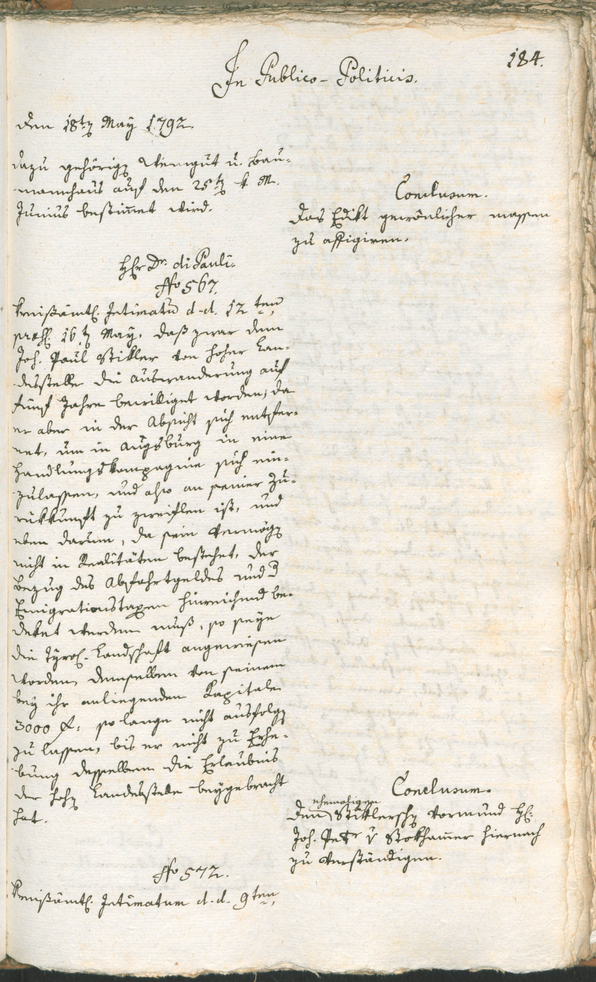 184.
In Publico-Politicis.
den 18ty May 1792.
dazu gehörige Weingut u. Bau-
mannhaus auf den 25ty k. M.
Junius bestimt wird.
Conclusum.
Das Edikt gewönlicher massen
zu affigiren.
Hr Dr. di Pauli.
No 567.
Kreisämtl. Intimatum d. d. 12ten,
praes. 16ty May, daß zwar dem
Joh. Paul Stikler von hoher Lan-
desstelle die Auswanderung auf
fünf Jahre bewilliget worden; da
er aber in der Absicht sich entfer-
net, um in Augsburg in eine
Handlungskompagnie sich ein-
zulassen, und also an seiner Zu-
rükkunft zu zweiflen ist, und
eben darum, da sein Vermögen
nicht in Realitäten bestehet, der
Bezug des Abfahrtgeldes und
Emigrationstaxen hinreichend be-
deket werden muß, so seye
die Tyrol. Landschaft angewiesen
worden, demselben von seinem
bey ihr anliegenden Kapitale
3000 f. so lange nicht ausfolgen
zu lassen, bis er nicht zu Erhe-
bung desselben die Erlaubnis
der hohen Landesstelle beygebracht
hat.
Conclusum.
Dem ehemaligen Stiklerschen Vormund H.
Joh. Peter v Stokhamer hiernach
zu verständigen.
No 572.
Kreisämtl. Intimatum d. d. 9ten,